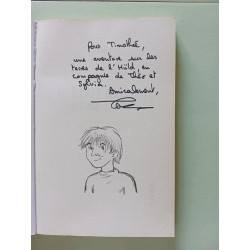 Pour Timothée,
une aventure sur les
terres de l'Hüld, en
compagnie de Théo et
Sylvia.
Amicalement,